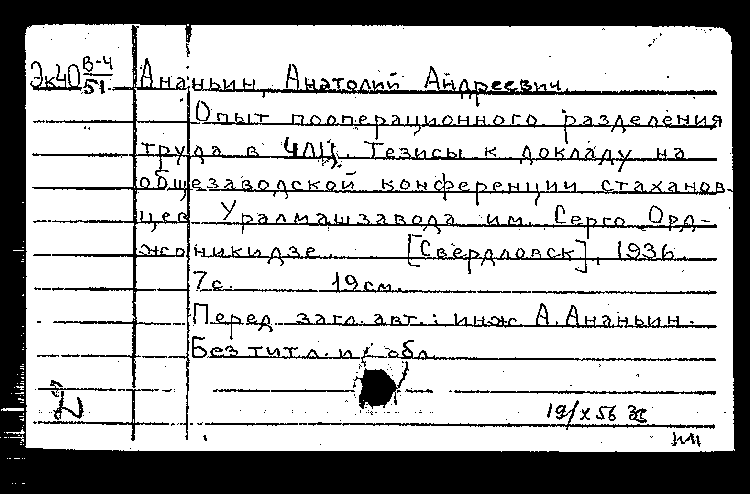 Эк40 В-4/51 Ананьин, Анатолий Андреевич.
Опыт пооперационного разделения
труда в ЧЛЦ. Тезисы к докладу на
общезаводской конференции стаханов-
цев Уралмашзавода им. Серго Орд-
жоникидзе. [Свердловск], 1936
7с. 19см.
Перед загл. авт.: инж А. Ананьин.
Без тит л. и обл
19/X 56